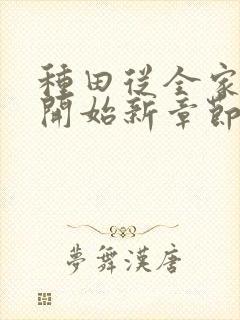 種田從全家
開始新章節
夢舞漢唐